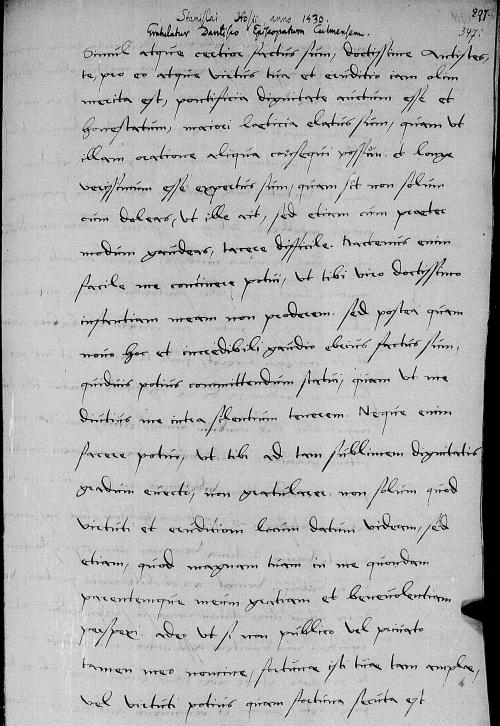 Stanislai Hosii anno 1530.
297
Gratulatur Dantisco Episcopatum Culmensem.
347.
Simul atque certior factus sum, doctissime Antistes,
te, pro eo atque virtus tua et eruditio iam olim
merita est, pontificia dignitate auctum esse et
honestatum, maiori laeticia elatus sum, quam ut
illam oratione aliqua consequi possim. et longe
verissimum esse expertus sum, quam sit non solum
cum doleas, ut ille ait, sed etiam cum praeter
modum gaudeas, tacere difficile. Hactenus enim
facile me continere potui, ut tibi viro doctissimo
infantiam meam non proderem. sed postea quam
novo hoc et incredibili gaudio ebrius factus sum,
quidvis potius committendum statui, quam ut me
diutius me intra silentium tenerem. Neque enim
facere potui, ut tibi ad tam sublimem dignitatis
gradum evecti, non gratularer. non solum quod
virtuti et eruditioni locum datum viderem, sed
etiam, quod magnam tuam in me quondam
parentemque meum gratiam et benevolentiam
perspexi. adeo ut si non publico vel privato
tamen meo nomine, fortunae isti tuae tam amplae,
vel virtuti potius quam fortuna secuta est